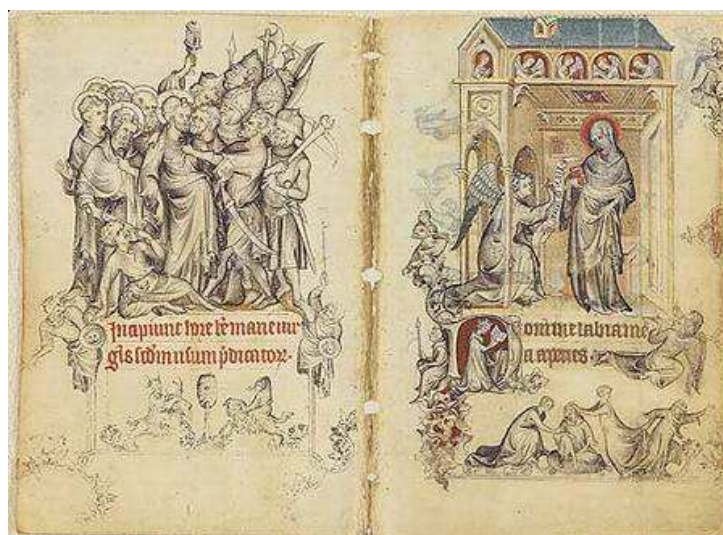 Incipiunt hore be marie vir
gis scdm usum pdicator.
Domine labia me
a aperies.